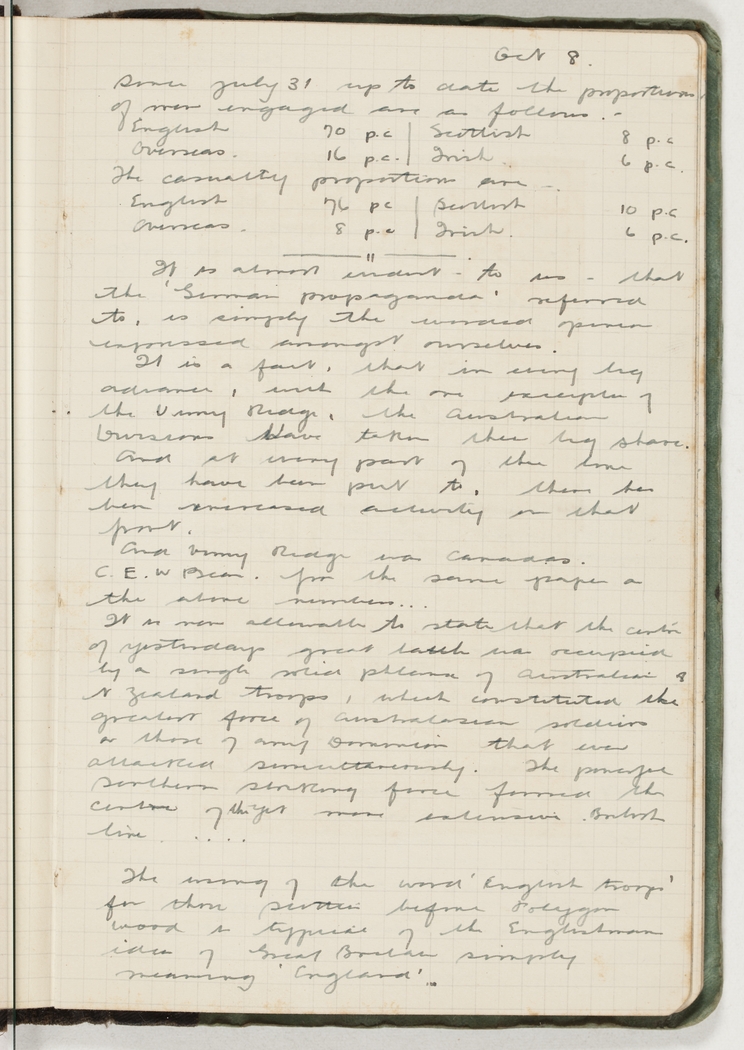 Oct 8.
Since July 31 up to date the proportions
of men engaged are as follows.-
English 70 p.c | Scottish 8 p.c
Overseas. 16 p.c. | Irish. 6 p.c.
The casualty proportion are -
English 76 pc | Scottish 10 p.c
Overseas. 8 p.c | Irish. 6 p.c.
It is almost evident - to us - that
the 'German propaganda' referred
to, is simply the worded opinion
expressed amongst ourselves.
It is a fact, that in every big
advance, with the one exception of
the Vimy Ridge, the Australian
Divisions have taken their big share.
And at every part of the line
they have been put to, there has
been increased activity on that
front.
And Vimy Ridge was Canadas.
C. E. W Bean. for the same paper as
the above numbers...
It is now allowable to state that the centre
of yesterdays great battle was occupied
by a single solid phlanx of Australian &
N Zealand troops, which constituted the
greatest force of Australasian soldiers
or those of any Dominion that ever
attacked simultaneously. The powerful
southern striking force formed the
centre of the yet more extensive British
line .....
The using of the word 'English troops'
for those before Polygon
wood is typical of the Englishman
idea of Great Britain simply
meaning 'England'...